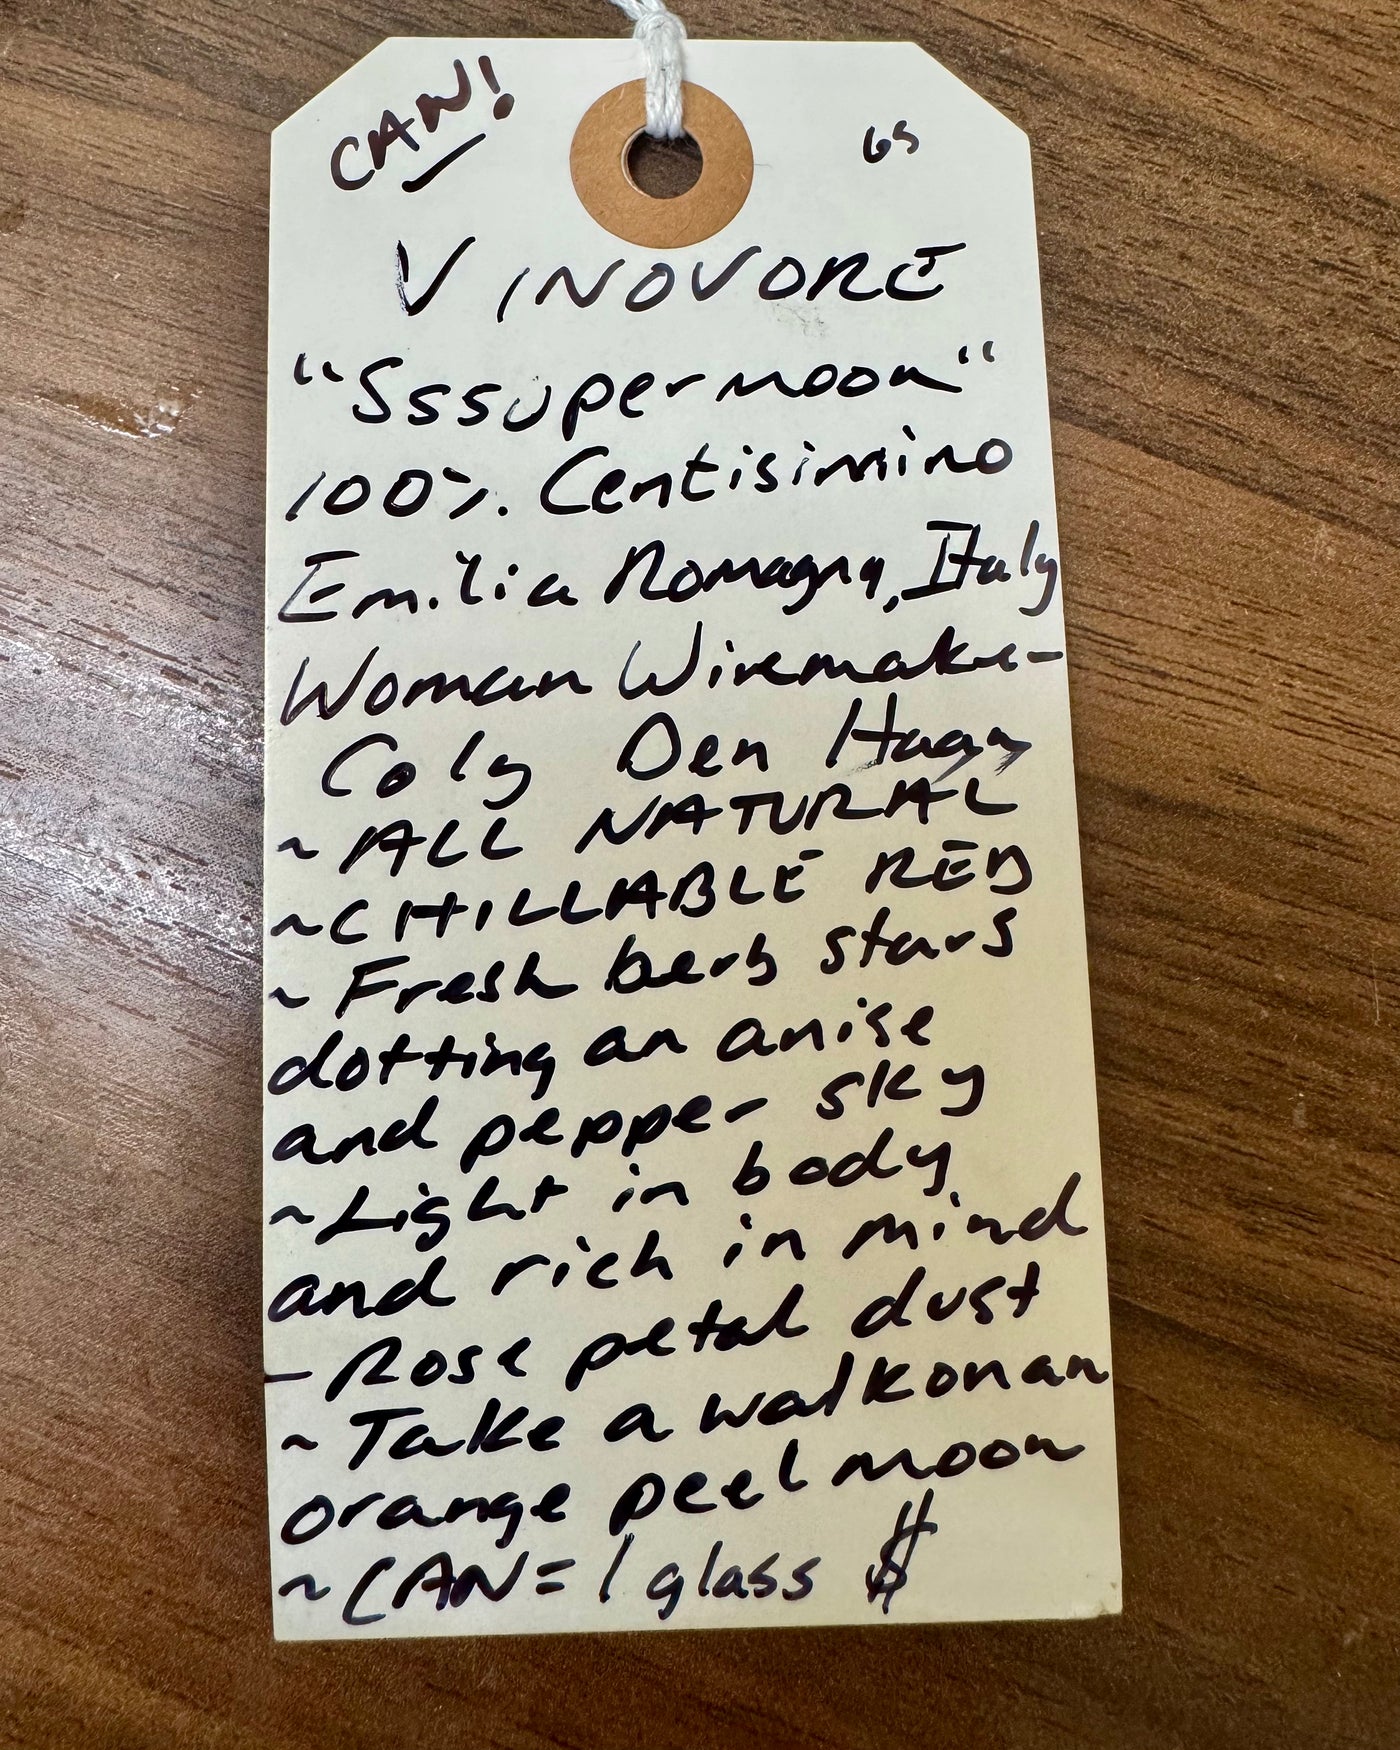 CAN!
65
VINOVORE
"Sssupermoon"
100%. Centisimino
Emilia Romagna, Italy
Woman Winemaker-
Coly Den Haan
~ALL NATURAL
~CHILLABLE RED
~Fresh berb stars
dotting an anise
and pepper sky
~Light in body
and rich in mind
-Rose petal dust
~Take a walk on an
orange peel moon
~CAN=1 glass $